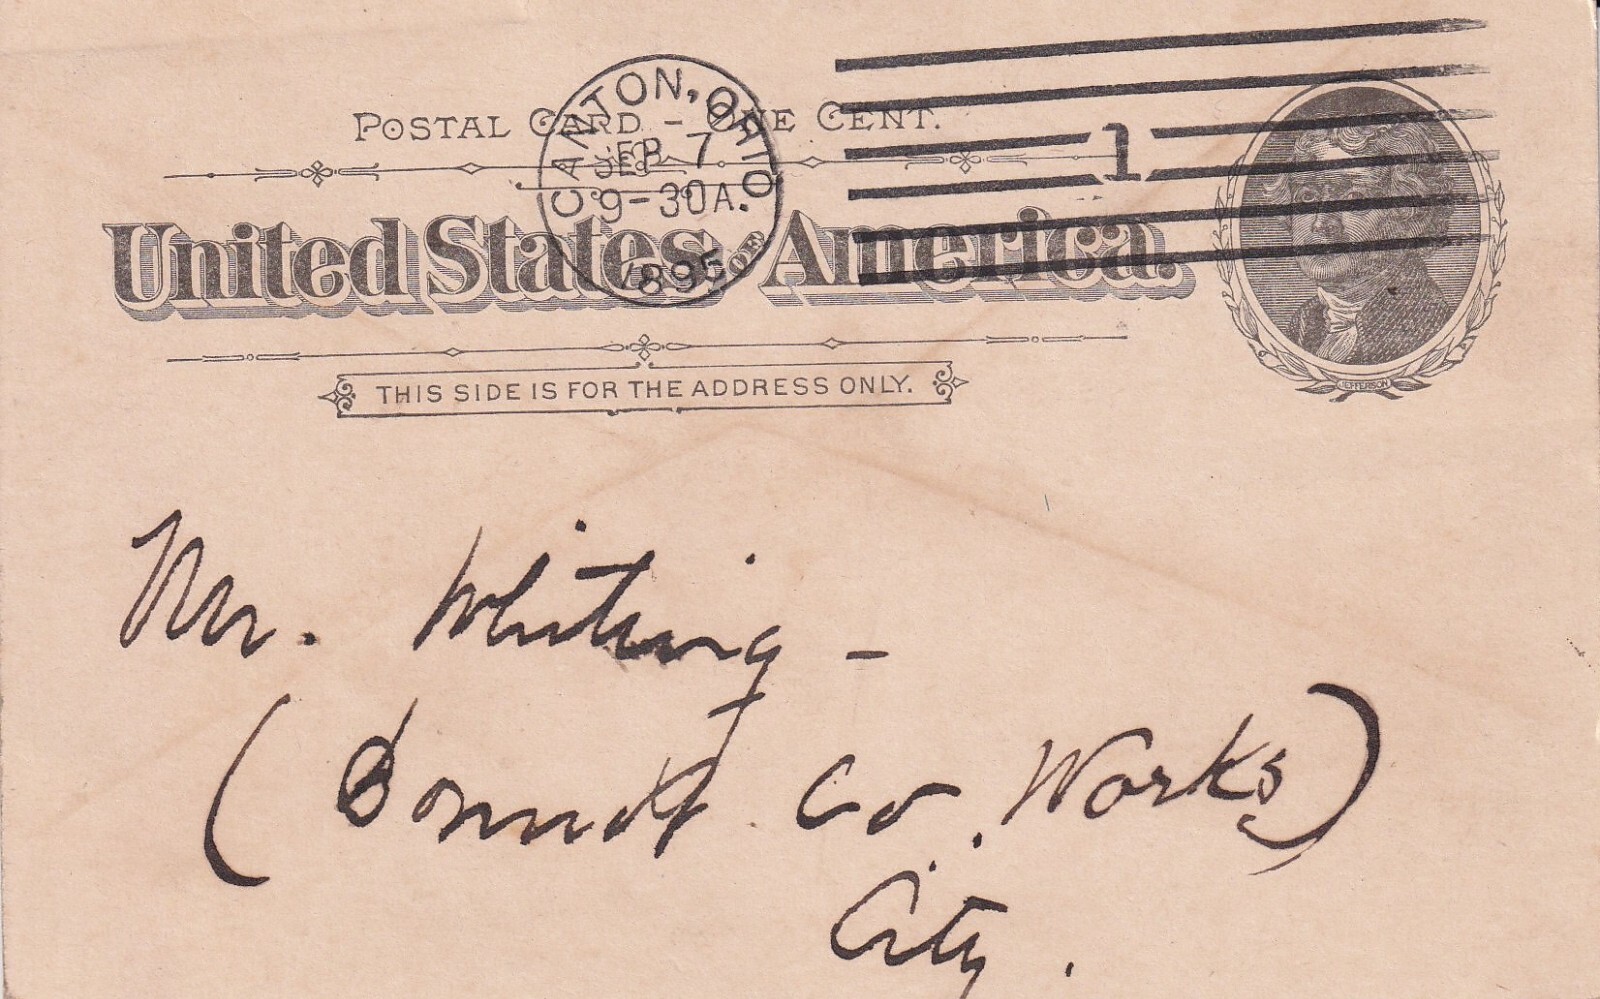 CANTON, OHIO
SEP 7
9-30A.
1895
1
POSTAL CARD - ONE CENT.
United States OF America.
JEFFERSON
THIS SIDE IS FOR THE ADDRESS ONLY.
Mr. Whiting -
( Co. Works)
City.